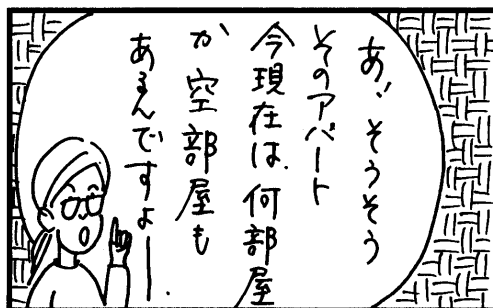 あ、そうそう
そのアパート
今現在は、何部屋
か空部屋も
あるんですよー.